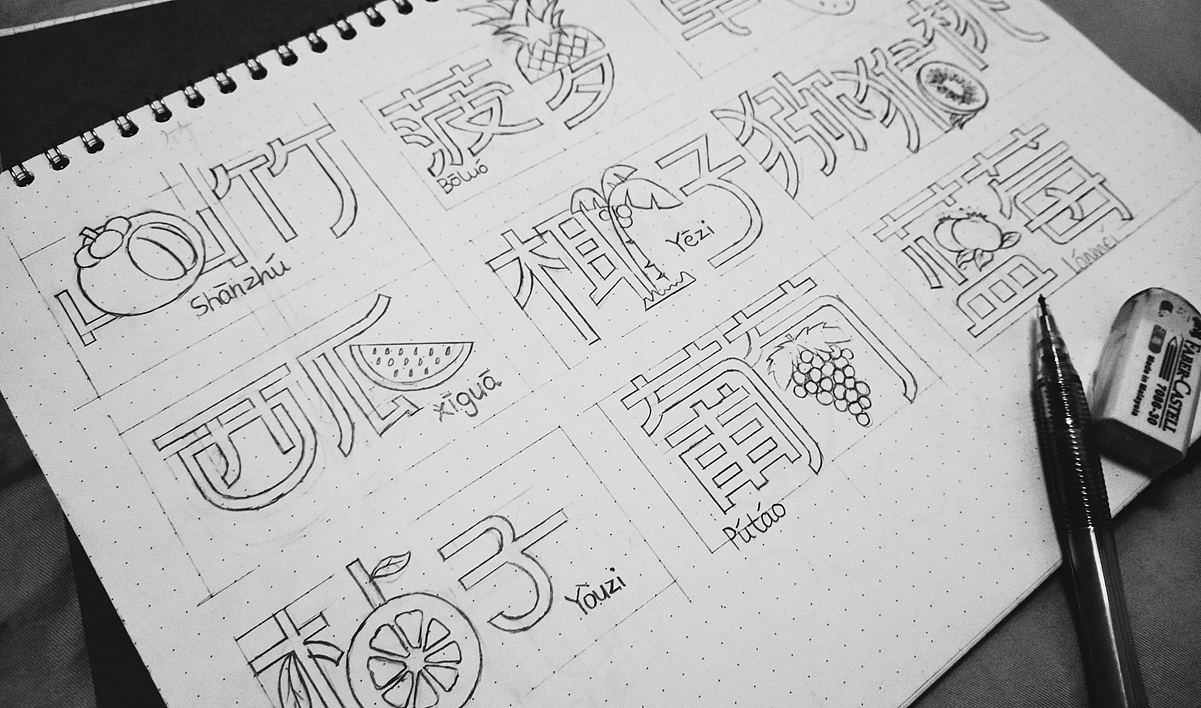 山竹
Shānzhú
菠萝
Bōluó
猕猴桃
椰子
Yēzi
蓝莓
lánméi
西瓜
xīguā
葡萄
Pútáo
柚子
Yōuzi
FABER-CASTELL
7086-30
Made in Malaysia